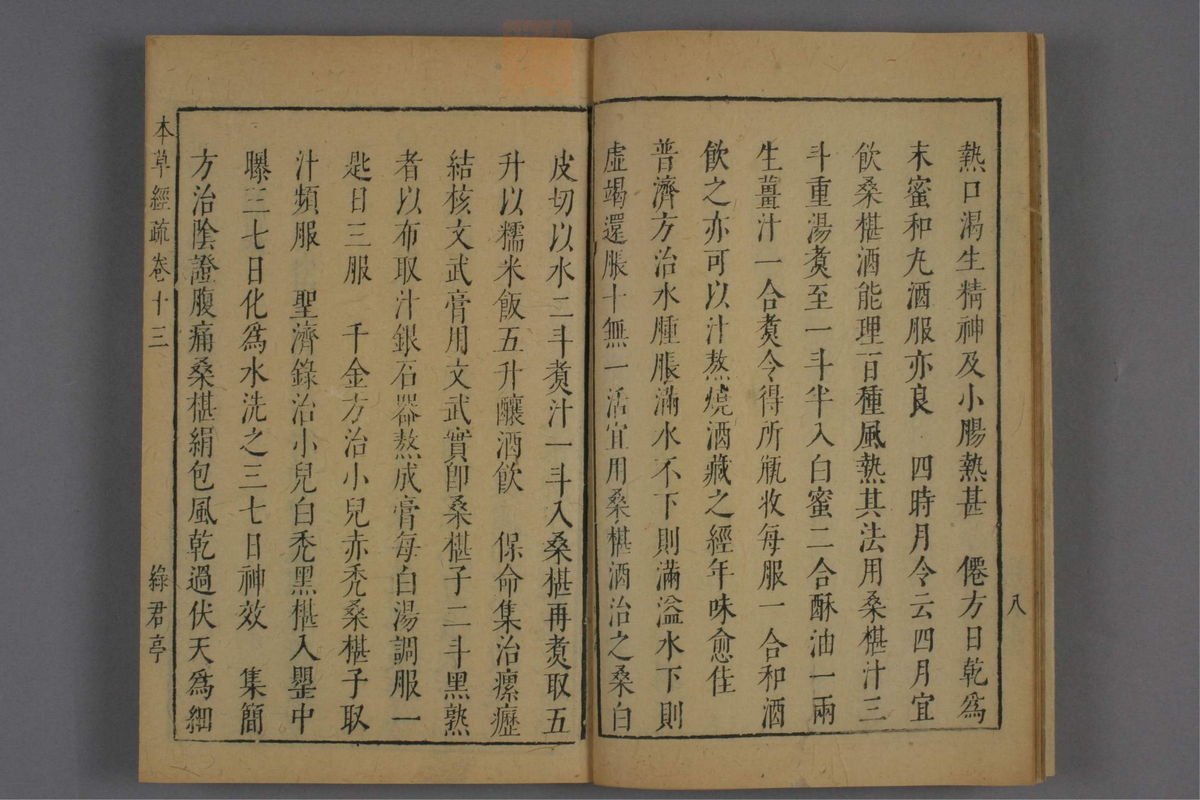 熱口渴生精神及小腸熱甚　僊方日乾爲
末蜜和丸酒服亦良　四時月令云四月宜
飲桑椹酒能理百種風熱其法用桑椹汁三
斗重湯煑至一斗半入白蜜二合酥油一兩
生薑汁一合煑令得所瓶收每服一合和酒
飲之亦可以汁熬燒酒藏之經年味愈佳
普濟方治水腫脹滿水不下則滿溢水下則
虛竭還脹十無一活宜用桑椹酒治之桑白
八
皮切以水二斗煑汁一斗入桑椹再煑取五
升以糯米飯五升釀酒飲　保命集治瘰癧
結核文武膏用文武實卽桑椹子二斗黑熟
者以布取汁銀石器熬成膏每白湯調服一
匙日三服　千金方治小兒赤禿桑椹子取
汁頻服　聖濟錄治小兒白禿黑椹入罌中
曝三七日化爲水洗之三七日神效　集簡
方治陰證腹痛桑椹絹包風乾過伏天爲細
本草經疏卷十三　綠君亭